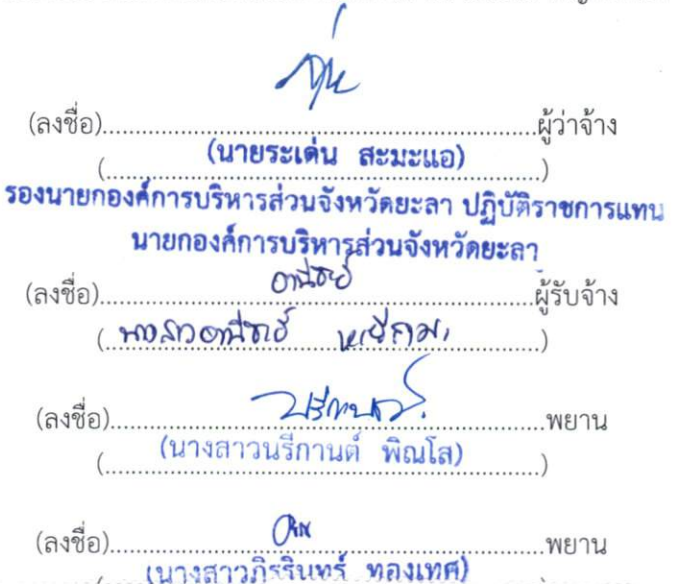 (ลงชื่อ)..........ผู้ว่าจ้าง
(นายระเด่น สะมะแอ)
รองนายกองค์การบริหารส่วนจังหวัดยะลา ปฏิบัติราชการแทน
นายกองค์การบริหารส่วนจังหวัดยะลา
(ลงชื่อ)..........ผู้รับจ้าง
(นางสาว)
(ลงชื่อ)..........พยาน
(นางสาวนรีกานต์ พิณโส)
(ลงชื่อ)..........พยาน
(นางสาวภิรรินทร์ ทองเทศ)